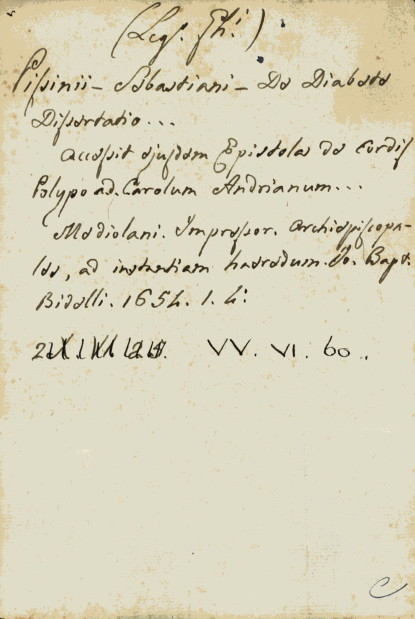 (Leg. Ghi.)
Pissinii - Sebastiani - De Diabete
Dissertatio...
Accessit ejusdem Epistola de Cordis
Polypo ad. Carolum Andrianum...
Mediolani. Impressor. Archiepiscopa-
les, ad instantiam haeredum. Io. Bapt.
Bidelli. 1654. 1. 4:
VV. VI. 60.